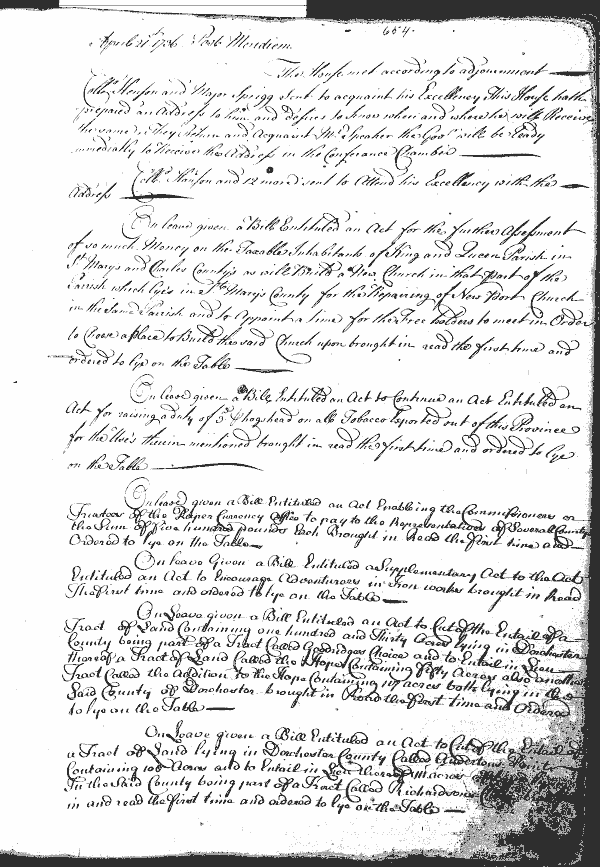 654.
April 21st 1736 Post Meridiem
The House met according to adjournment
Coll. Hanson and Major Sprigg sent to acquaint his Excellency this House hath
prepared an Address to him and desires to know when and where he will Receive
the same. They return and Acquaint Mr Speaker the Govr will be ready
immediatly to receive the Address in the Conference Chamber
Coll. Hanson and 12 more sent to Attend his Excellency with the
Address
On leave given a Bill Entituled an Act for the further Assessment
of so much Money on the Taxable Inhabitants of King and Queen Parish in
St Marys and Charles Countys as will build a New Church in that part of the
Parish which lyes in St Marys County for the Repairing of New Port Church
in the same Parish and to Appoint a time for the Free holders to meet in Order
to Choose a place to Build the said Church upon brought in read the first time and
ordered to lye on the Table
On leave given a Bill Entituled an Act to Continue an Act Entituled an
Act for raising a duty of 3d hogshead on all Tobacco Exported out of this Province
for the Uses therein mentioned brought in read the first time and ordered to lye
on the Table
On leave given a Bill Entituled an Act Enabling the Commissioners or
Trustees of the Paper Currency Office to pay to the Representatives of Several Countys
the Sum of five hundred pounds Each Brought in Read the first time and
Ordered to lye on the Table
On leave Given a Bill Entituled a Supplementary Act to the Act
Entituled an Act to Encourage Adventurers in Iron works brought in Read
the first time and ordered to lye on the Table
On Leave given a Bill Entituled an Act to Cut of the Entail of a
Tract of Land Containing one hundred and thirty Acres lying in Dorchester
County being part of a Tract Called Choice and to Entail in Lieu
thereof a Tract of Land Called the Hope Containing fifty Acres also another
Tract Called the Addition to the Hope Containing acres both lying in the
Said County of Dorchester brought in Read the first time and Ordered
to lye on the Table
On Leave given a Bill Entituled an Act to Cut of the Entail of
a Tract of Land lying in Dorchester County Called
Containing 100 Acres and to Entail in Lieu thereof acres
In the Said County being part of a Tract Called Richardsons
in and read the first time and ordered to lye on the Table